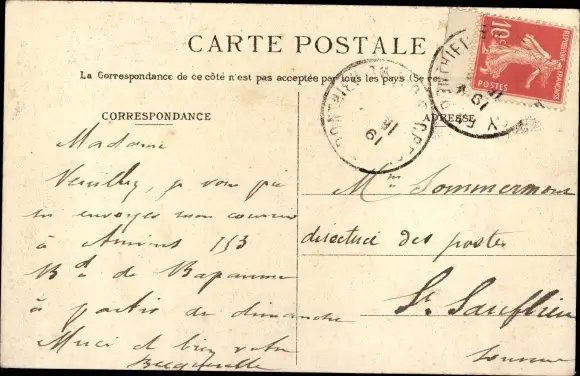 CARTE POSTALE
La Correspondance de ce côté n'est pas acceptée par tous les pays (Se re
CORRESPONDANCE
ADRESSE
10c
REPUBLIQUE FRANÇAISE
POSTES
Madame
Veuillez, je vous prie
m'envoyer mon courrier
à Amiens 153
Bd de Bapaume
à partir de dimanche
Merci et bien votre
Mme Sommermont
directrice des postes
St Sauflieu
Somme